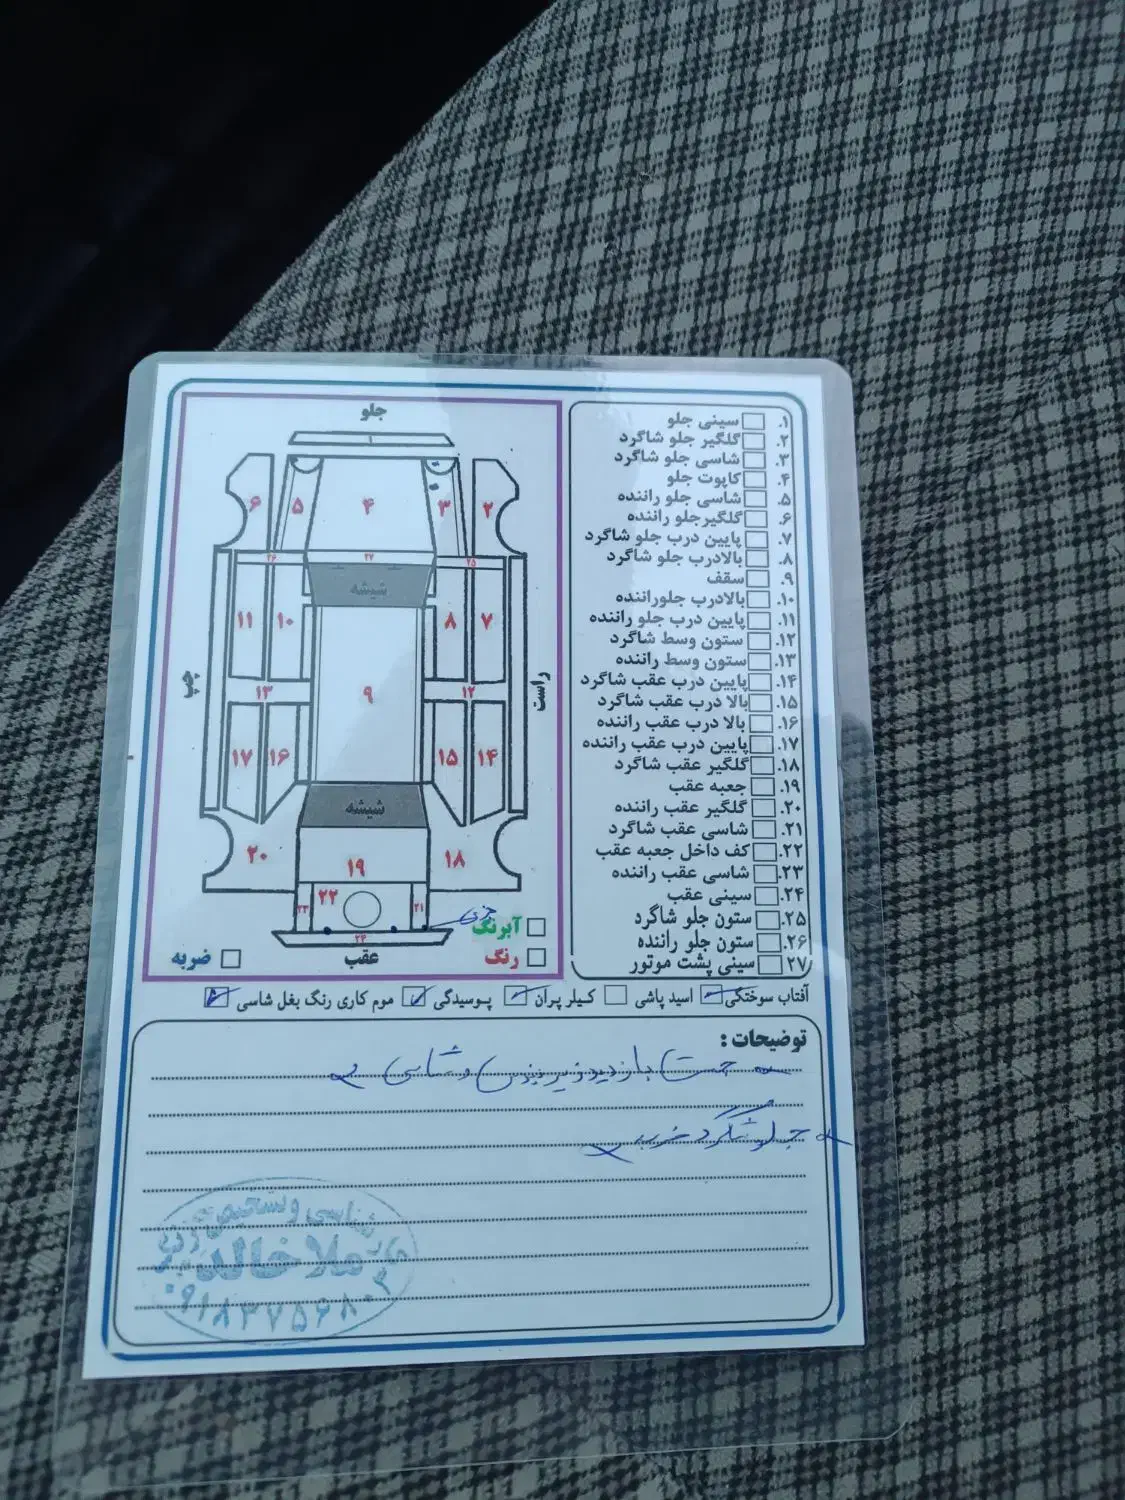 جلو
۶ ۵ ۴ ۳ ۲
۲۶ ۲۷ ۲۵
شیشه
۱۱ ۱۰ ۸ ۷
چپ ۱۳ ۹ ۱۲ راست
۱۷ ۱۶ ۱۵ ۱۴
شیشه
۲۰ ۱۹ ۱۸
۲۳ ۲۲ ۲۱
۲۴
عقب
آبرنگ
رنگ
ضربه
۱. سینی جلو
۲. گلگیر جلو شاگرد
۳. شاسی جلو شاگرد
۴. کاپوت جلو
۵. شاسی جلو راننده
۶. گلگیرجلو راننده
۷. پایین درب جلو شاگرد
۸. بالادرب جلو شاگرد
۹. سقف
۱۰. بالادرب جلوراننده
۱۱. پایین درب جلو راننده
۱۲. ستون وسط شاگرد
۱۳. ستون وسط راننده
۱۴. پایین درب عقب شاگرد
۱۵. بالا درب عقب شاگرد
۱۶. بالا درب عقب راننده
۱۷. پایین درب عقب راننده
۱۸. گلگیر عقب شاگرد
۱۹. جعبه عقب
۲۰. گلگیر عقب راننده
۲۱. شاسی عقب شاگرد
۲۲. کف داخل جعبه عقب
۲۳. شاسی عقب راننده
۲۴. سینی عقب
۲۵. ستون جلو شاگرد
۲۶. ستون جلو راننده
۲۷. سینی پشت موتور
آفتاب سوختگی اسید پاشی کیلر پران پوسیدگی موم کاری رنگ بغل شاسی
توضیحات :
وشاسی
جلو شاگرد ضرب
ملاخالد